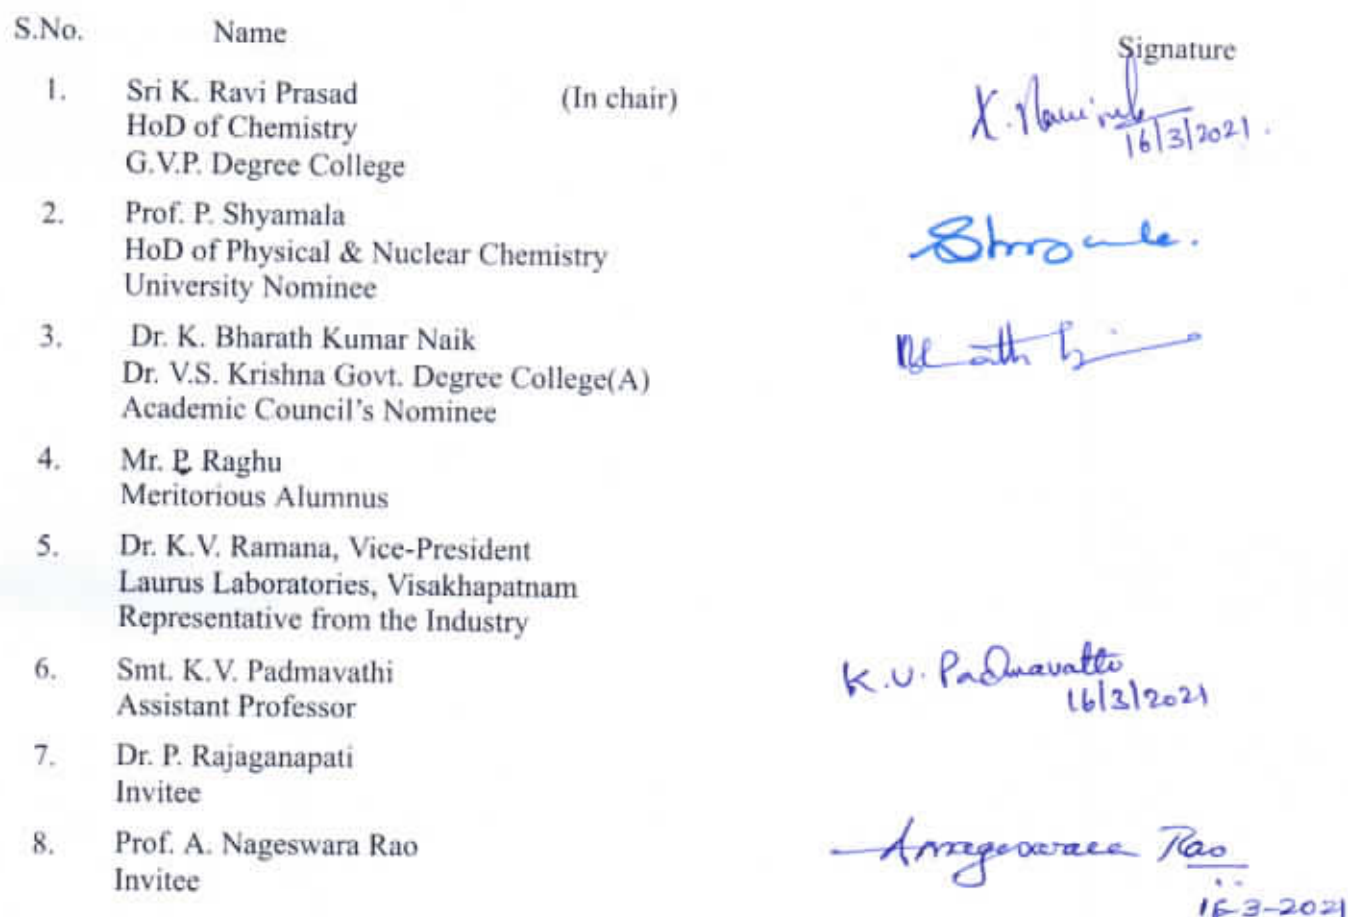 S.No. Name Signature
1. Sri K. Ravi Prasad (In chair)
HoD of Chemistry
G.V.P. Degree College
16/3/2021.
2. Prof. P. Shyamala
HoD of Physical & Nuclear Chemistry
University Nominee
3. Dr. K. Bharath Kumar Naik
Dr. V.S. Krishna Govt. Degree College(A)
Academic Council's Nominee
4. Mr. P. Raghu
Meritorious Alumnus
5. Dr. K.V. Ramana, Vice-President
Laurus Laboratories, Visakhapatnam
Representative from the Industry
6. Smt. K.V. Padmavathi K.V. Padmavathi
Assistant Professor 16/3/2021
7. Dr. P. Rajaganapati
Invitee
8. Prof. A. Nageswara Rao Rao
Invitee
16-3-2021